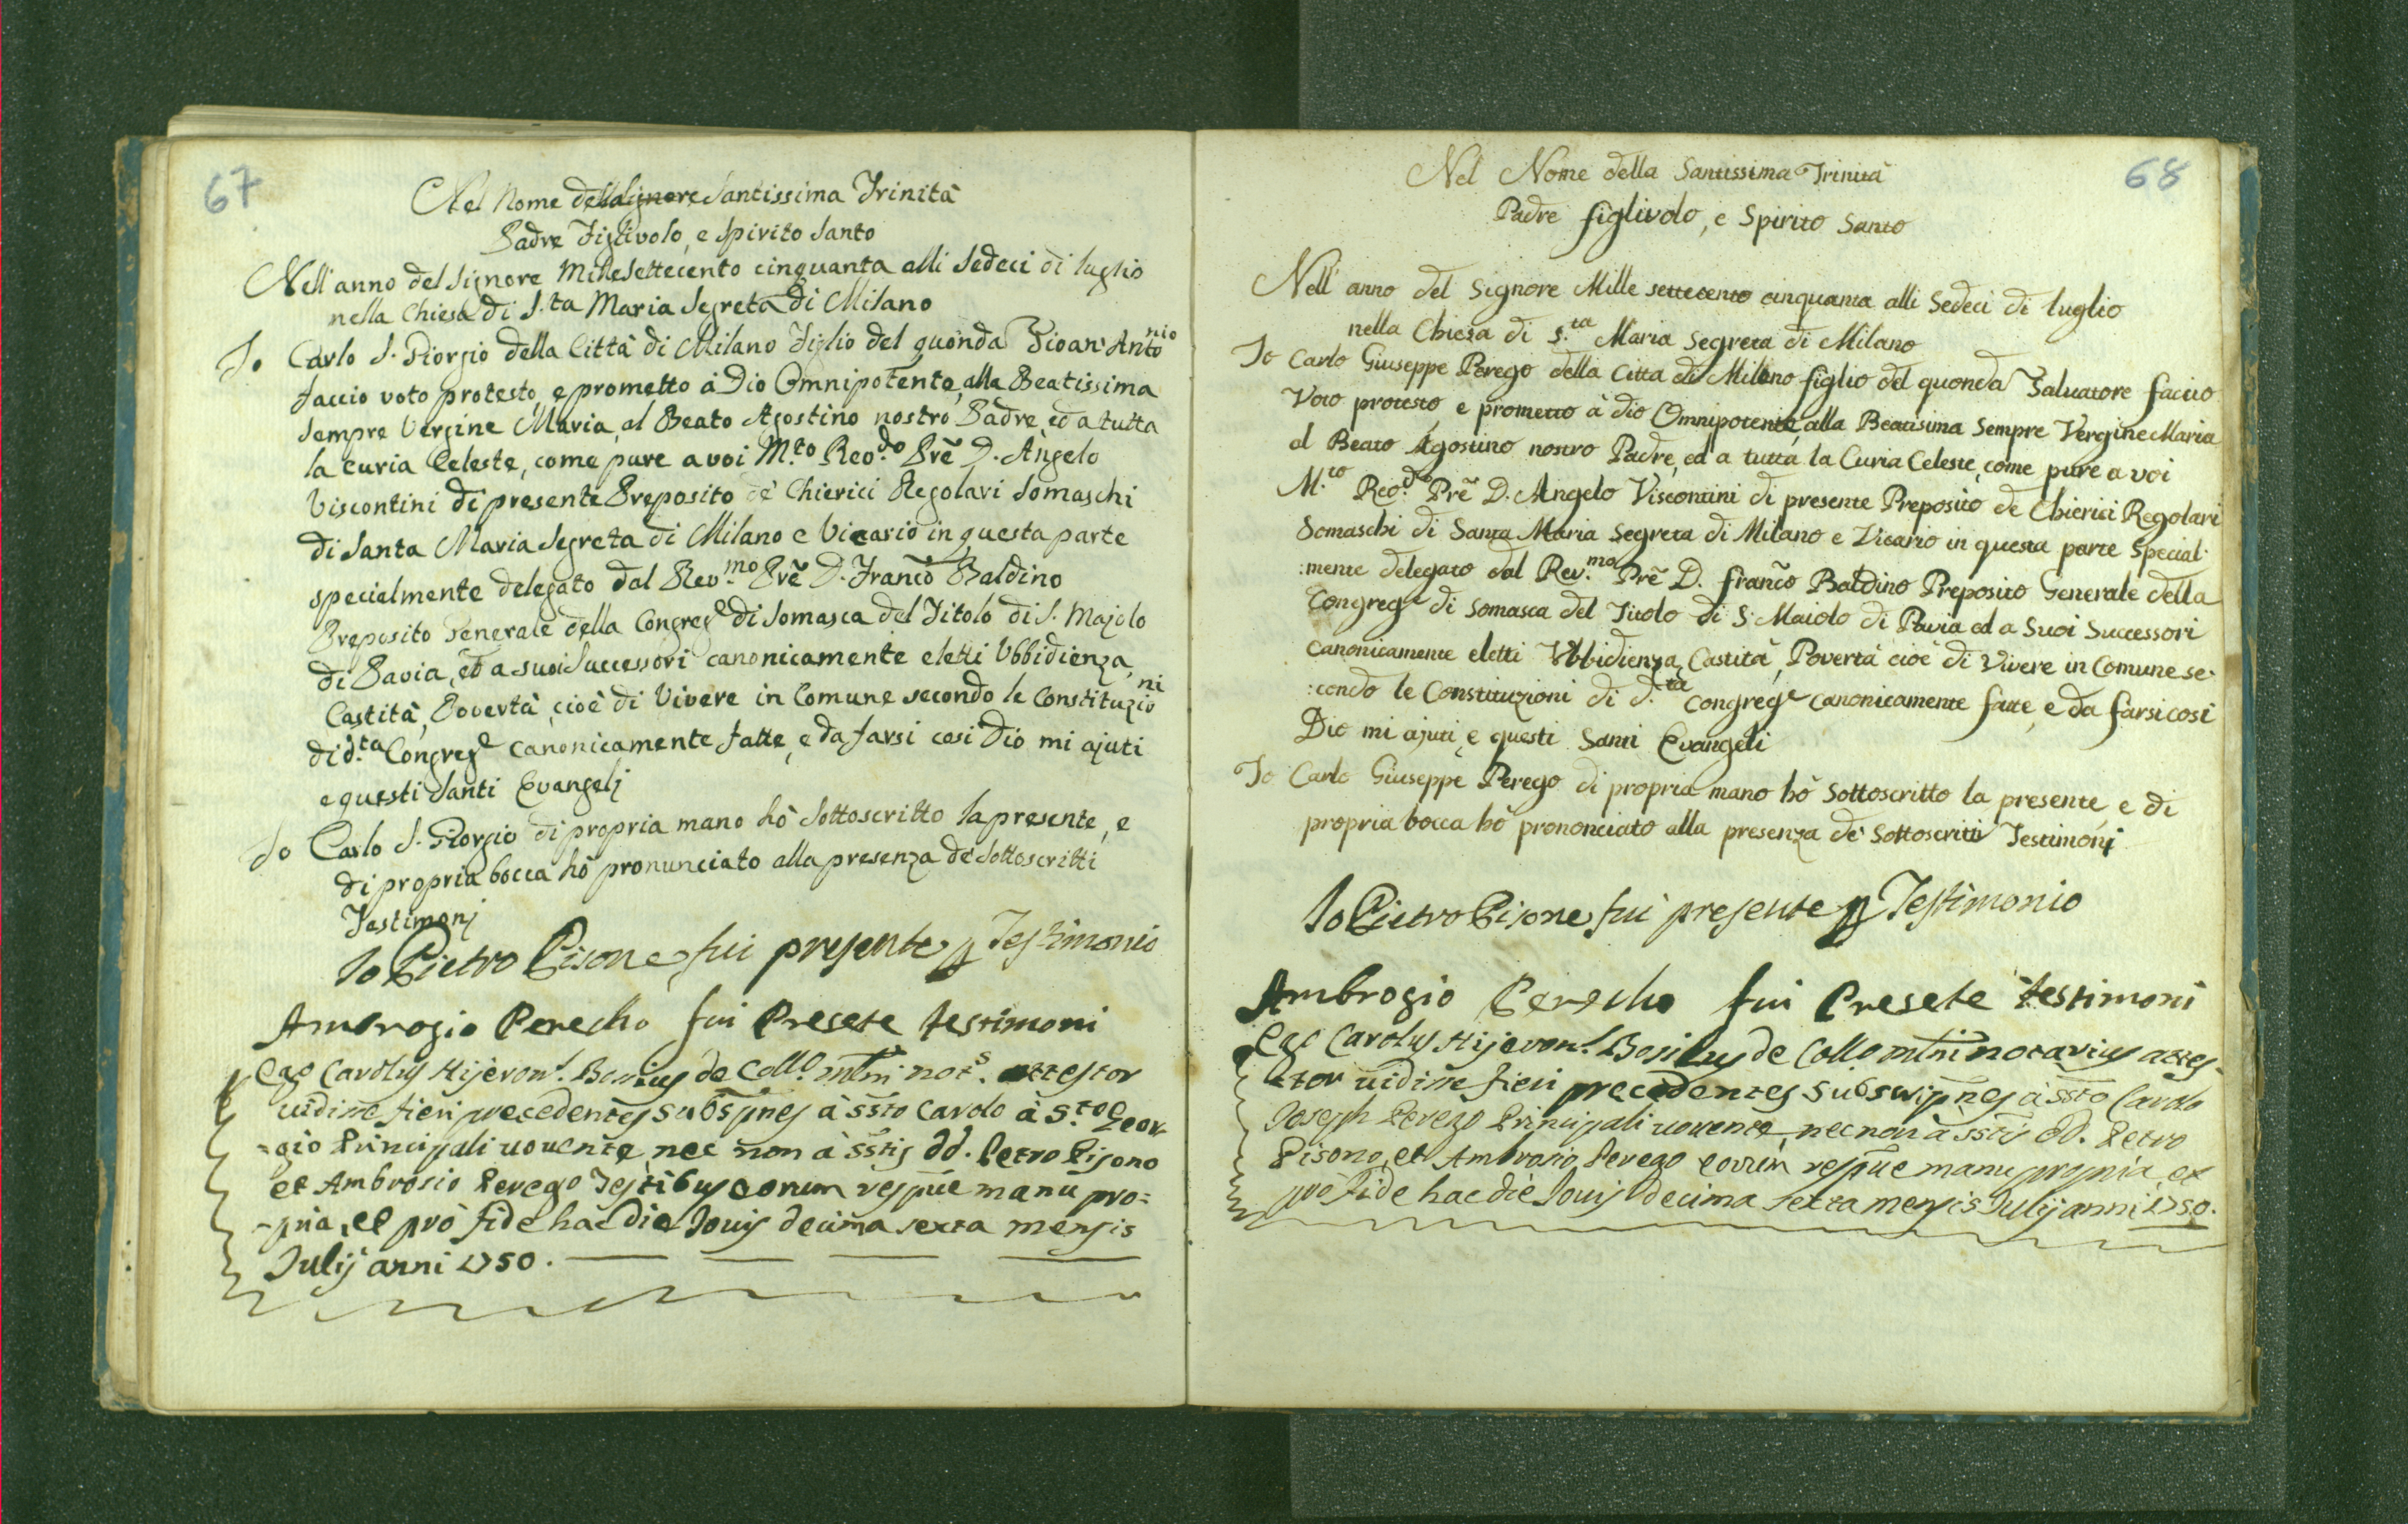 67
Nel Nome della Signore Santissima Trinità
Padre Figlivolo, e Spirito Santo
Nell'anno del Signore Mille Settecento cinquanta alli Sedeci di luglio
nella Chiesa di S.ta Maria Segreta di Milano
Io Carlo S. Giorgio della Città di Milano Figlio del quonda Gioan' Antonio
faccio voto protesto, e prometto à Dio Omnipotente, alla Beatissima
Sempre Vergine Maria, al Beato Agostino nostro Padre, ed a tutta
la Curia Celeste, come pure a voi M.to Reo.do Prẽ D. Angelo
Viscontini di presente Preposito de' Chierici Regolari Somaschi
di Santa Maria Segreta di Milano e Vicario in questa parte
specialmente delegato dal Rev.mo Prẽ D. Franco Baldino
Preposito Generale della Congreg.e di Somasca del Titolo di S. Majolo
di Pavia, ed a suoi Successori canonicamente eletti Ubbidienza,
Castità, Povertà, cioè di Vivere in Comune secondo le Constituzioni
di d.ta Congreg.e canonicamente fatte, e da farsi cosi Dio mi ajuti
e questi Santi Evangelj
Io Carlo S. Giorgio di propria mano hò Sottoscritto la presente, e
di propria bocca hò pronunciato alla presenza de' Sottoscritti
Testimonj
Io Pietro Pisone fui presente p Testimonio
Ambrogio Perecho fui Presete testimoni
Ego Carolus Hijeron.s de Coll.o mlni not.s attestor
uidisse fieri precedentes subspnes à ssto Carolo à S.to Geor-
-gio Principali uouente nec non à sstis dd. Petro Pisono
et Ambrosio Perego Testibus eorum respue manu pro=
-pria, et prò fide hac die Jouis decima sexta mensis
Julij anni 1750.
68
Nel Nome della Santissima Trinità
Padre figlivolo, e Spirito Santo
Nell' anno del Signore Mille settecento cinquanta alli Sedeci di luglio
nella Chiesa di S.ta Maria Segreta di Milano
Io Carlo Giuseppe Perego della Citta di Milano figlio del quonda Salvatore faccio
Voto protesto, e prometto à dio Omnipotente, alla Beatisima Sempre Vergine Maria
al Beato Agostino nostro Padre, ed a tutta la Curia Celeste, come pure a voi
M.to Reo.do Prẽ D. Angelo Viscontini di presente Preposito de Chierici Regolari
Somaschi di Santa Maria Segreta di Milano e Vicario in questa parte Special-
:mente delegato dal Rev.mo Prẽ D. franco Baldino Preposito Generale della
Congreg.e di Somasca del Titolo di S. Maiolo di Pavia ed a Suoi Successori
canonicamente eletti Ubbidienza, Castità, Povertà cioè di Vivere in Comune se-
:condo le Constituzioni di d.ta Congreg.e canonicamente fatte, e da farsi cosi
Dio mi ajuti, e questi Santi Evangeli
Io Carlo Giuseppe Perego di propria mano hò Sottoscritto la presente, e di
propria bocca hò prononciato alla presenza de' Sottoscritti Testimonj
Io Pietro Pisone fui presente p Testimonio
Ambrogio Perecho fui Presete testimoni
Ego Carolus Hijeron.s de Coll.o mlni notarius attes-
-tor uidisse fieri precedentes subscripnes à ssto Carolo
Joseph Perego Principali uouente, nec non à sstis dd. Petro
Pisono, et Ambrosio Perego eorum respue manu propria, et
pro fide hac die Jouis decima sexta mensis Julij anni 1750.